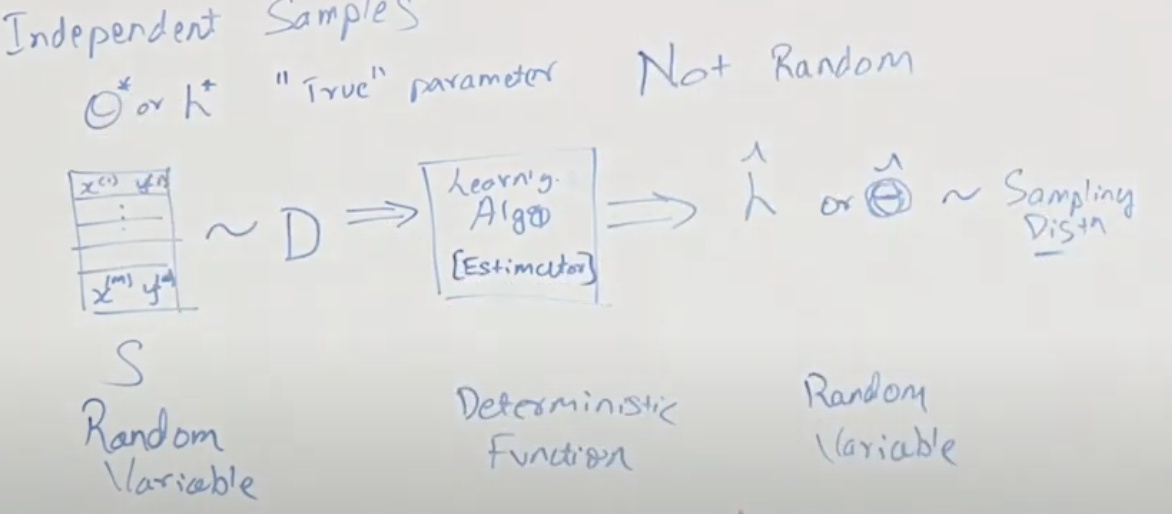 Independent Samples
θ* or h* "True" parameter Not Random
x⁽¹⁾ y⁽¹⁾
⋮
x⁽ᵐ⁾ y⁽ᵐ⁾
~ D ⇒
Learn'g.
Algo
[Estimator]
⇒ ĥ or θ̂ ~ Sampling
Distn
S
Random
Variable
Deterministic
Function
Random
Variable